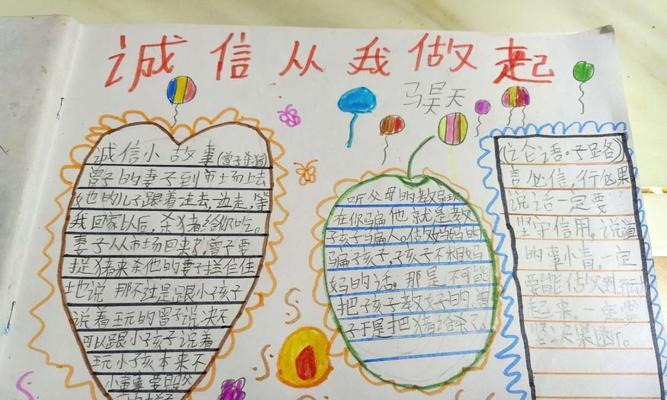 诚信从我做起
马昊天
诚信小故事
曾子的妻子到市场上去
她的儿子跟着走去,边走,
我回家以后,杀猪给你吃。
妻子从市场回来了,曾子要
捉猪来杀他的妻子拦住
他说 那不过是跟小孩子
说着玩的曾子说决不
可以跟小孩子说着
玩小孩本来不
听父母的教
在你骗他就是教
孩子骗人。
骗孩子,孩子不来相妈
妈的话。那是不可能
把孩子教好的
子于是把猪给杀了。
《论语·子路》
言必信,行必果
说话一定要
坚守信用,说道
的事小音,一定
要能
起来,一定要
坚决果断。